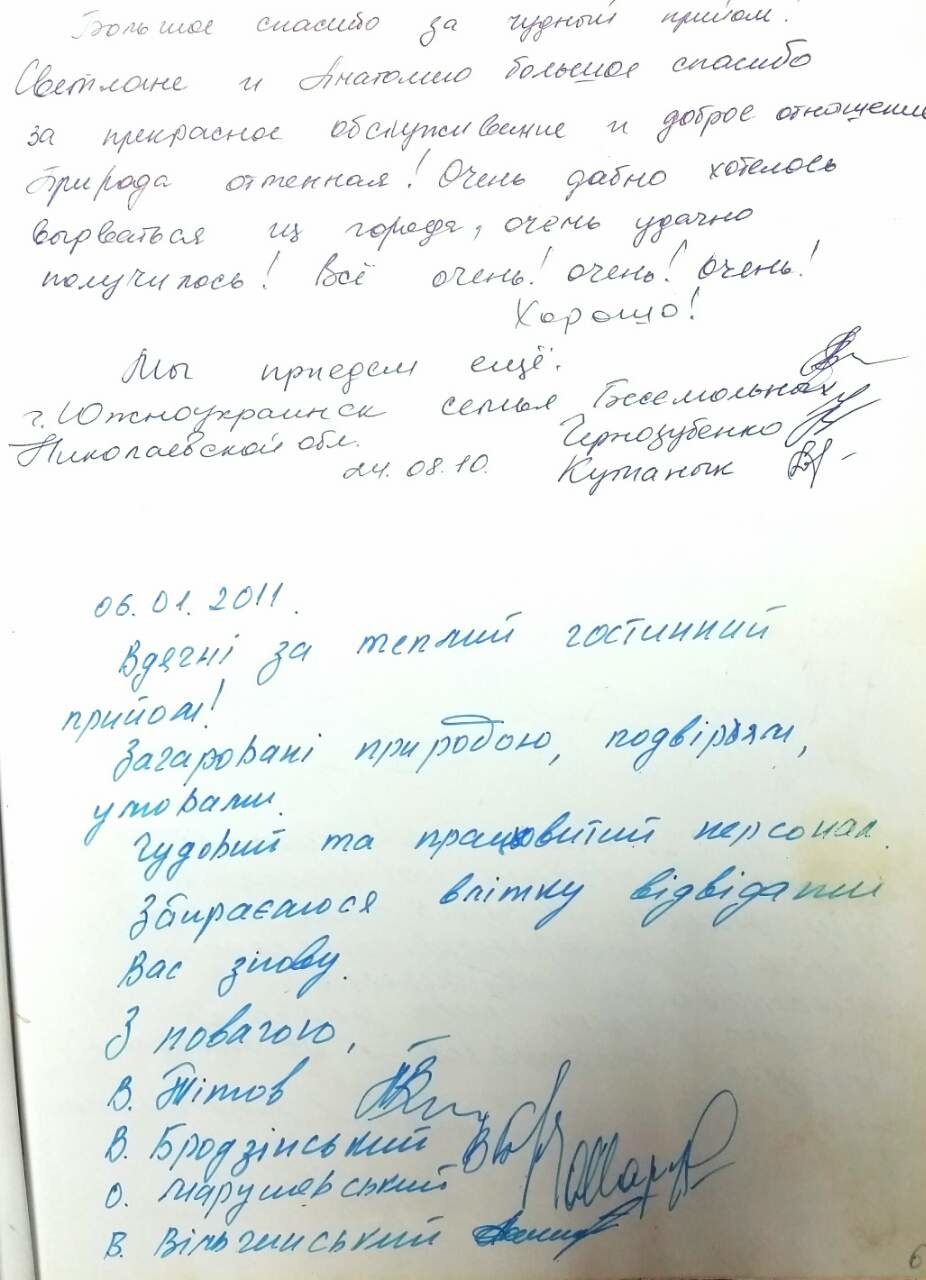 Большое спасибо за чудный прийом.
Светлане и Анатолию большое спасибо
за прекрасное обслуживение и доброе отношение
Природа отменная! Очень давно хотелось
вырваться из города, очень удачно
получилось! Всё очень! очень! очень!
Хорошо!
Мы приедем ещё.
г. Южноукраинск семья Бесемольных
Николаевской обл. Чернозубенко
24.08.10. Куманык
06.01.2011.
Вдячні за теплий гостинний
прийом!
Зачаровані природою, подвір'ям,
умовами.
Чудовий та працьовитий персонал
Збираємося влітку відвідати
Вас знову.
З повагою,
В. Тітов
В. Бродзінський
О. Марушевський
В. Вільчинський
6